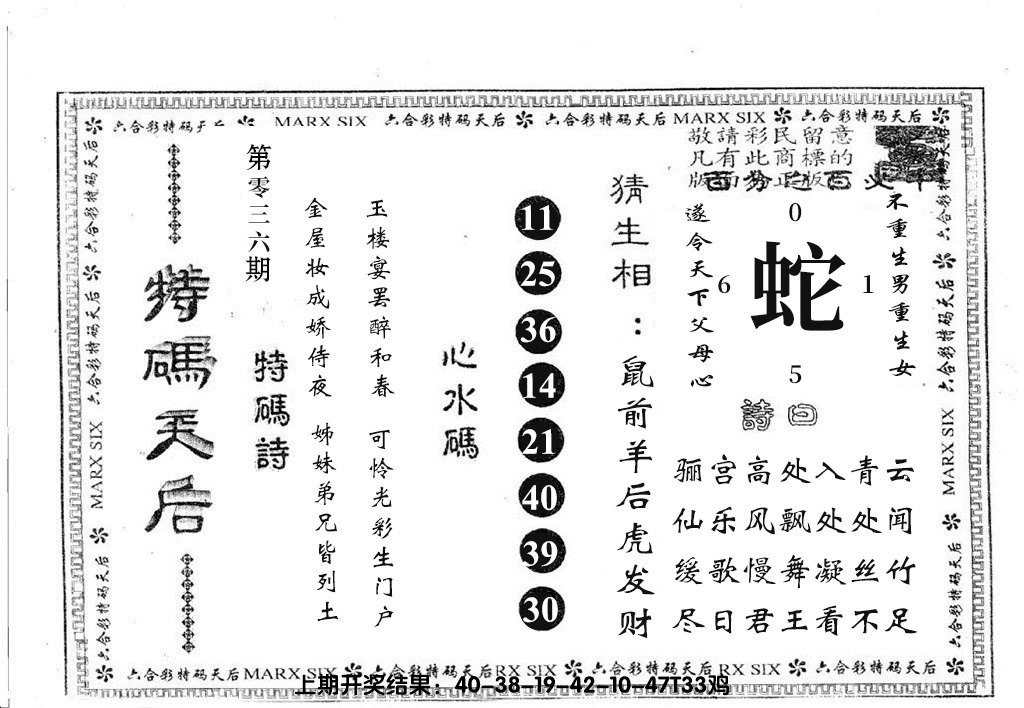 六合彩特码天后 MARX SIX 六合彩特码天后 六合彩特码天后 MARX SIX 六合彩特码天后
敬請彩民留意
凡有此商標的
特碼天后
第零三六期
特碼詩
金屋妆成娇侍夜
玉楼宴罢醉和春
姊妹弟兄皆列土
可怜光彩生门户
心水碼
11
25
36
14
21
40
39
30
猜生相：鼠前羊后虎发财
遂令天下父母心
不重生男重生女
0
6 蛇 1
5
詩曰
骊宫高处入青云
仙乐风飘处处闻
缓歌慢舞凝丝竹
尽日君王看不足
六合彩特码天后 MARX SIX 六合彩特码天后
六合彩特码天后 MARX SIX 六合彩特码天后
六合彩特码天后 MARX SIX 六合彩特码天后 RX SIX 六合彩特码天后 RX SIX 六合彩特码天后
上期开奖结果：40-38-19-42-10-47T33鸡